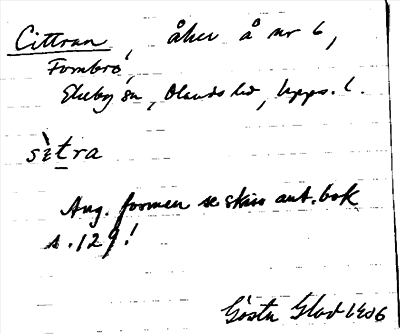 Cittran, åker å nr 6,
Fornbro,
Ekeby sn, Olands hd, Upps. l.
sètra
Ang. formen se skiss ant.bok
s. 129!
Gösta Glad 1906